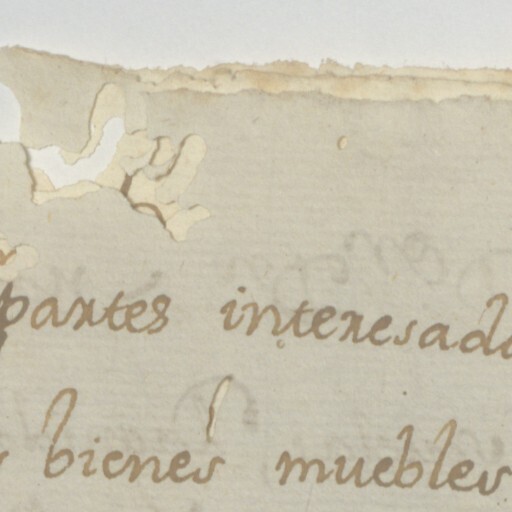 partes interesad
bienes muebles